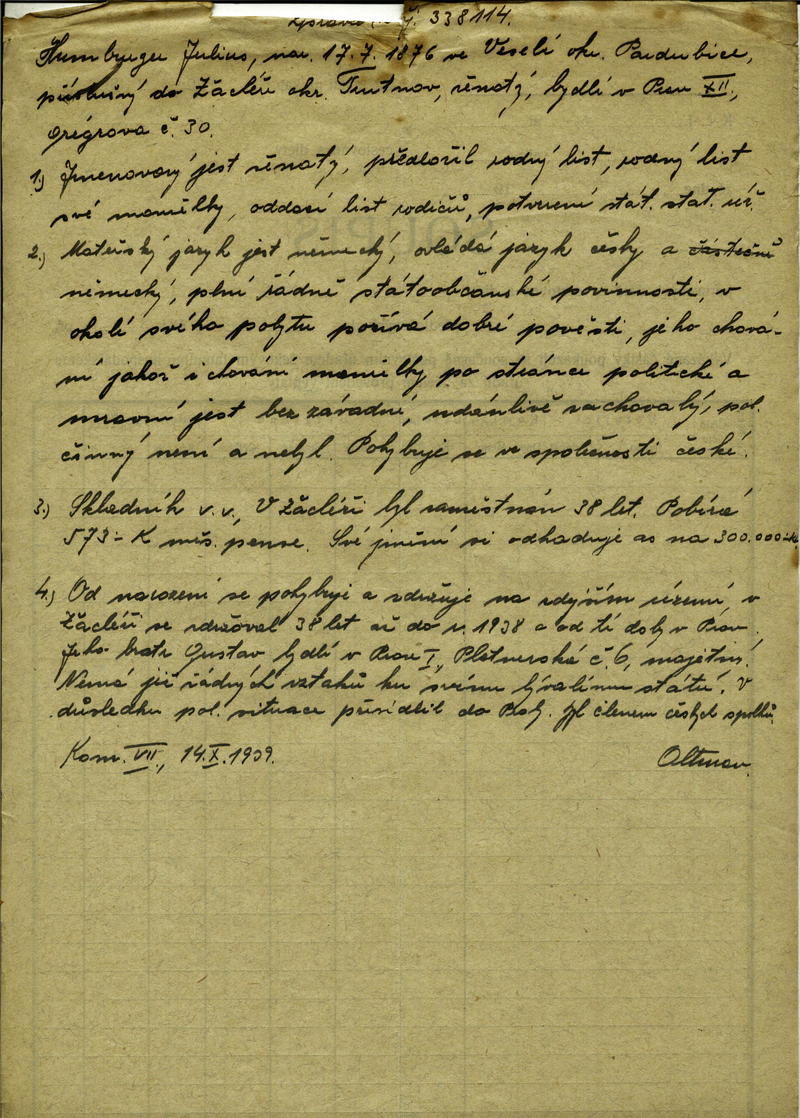 zpráva č.j. 338114.
Humburger Julius, nar. 17.7.1876 ve Veselí okr. Pardubice,
příslušný do Žacléře okr. Trutnov, ženatý, bydlí v Praze XII.,
Grégrova č. 30.
1.) Jmenovaný jest ženatý, předložil rodný list, rodný list
své manželky, oddací list rodičů, potvrzení stát. stat. úř.
2.) Mateřský jazyk jest německý, ovládá jazyk česky a částečně
německý, plní řádně státoobčanské povinnosti, v
okolí svého pobytu požívá dobré pověsti, jeho chová-
ní jakož i chování manželky po stránce politické a
mravní jest bezzávadné, udánlivě zachovalý, pol.
činný není a nebyl. Pohybuje se ve společnosti české.
3.) Skladník v.v., V Žacléři byl zaměstnán 38 let. Pobírá
573- K měs. pense. Své jmění si odhaduje as na 300.000-K.
4.) Od narození se pohybuje a zdržuje na zdejším území, v
Žacléři se zdržoval 38 let až do r. 1938 a od té doby v Praze.
Jeho bratr Gustav bydlí v Praze I., Platnerská č. 6, majetný.
Nemá již žádných vztahů ku svému bývalému státu. V
důsledku pol. situace přesídlil do Prahy. Byl členem českých spolků.
Kom. VII., 14.X.1939.
Altman.